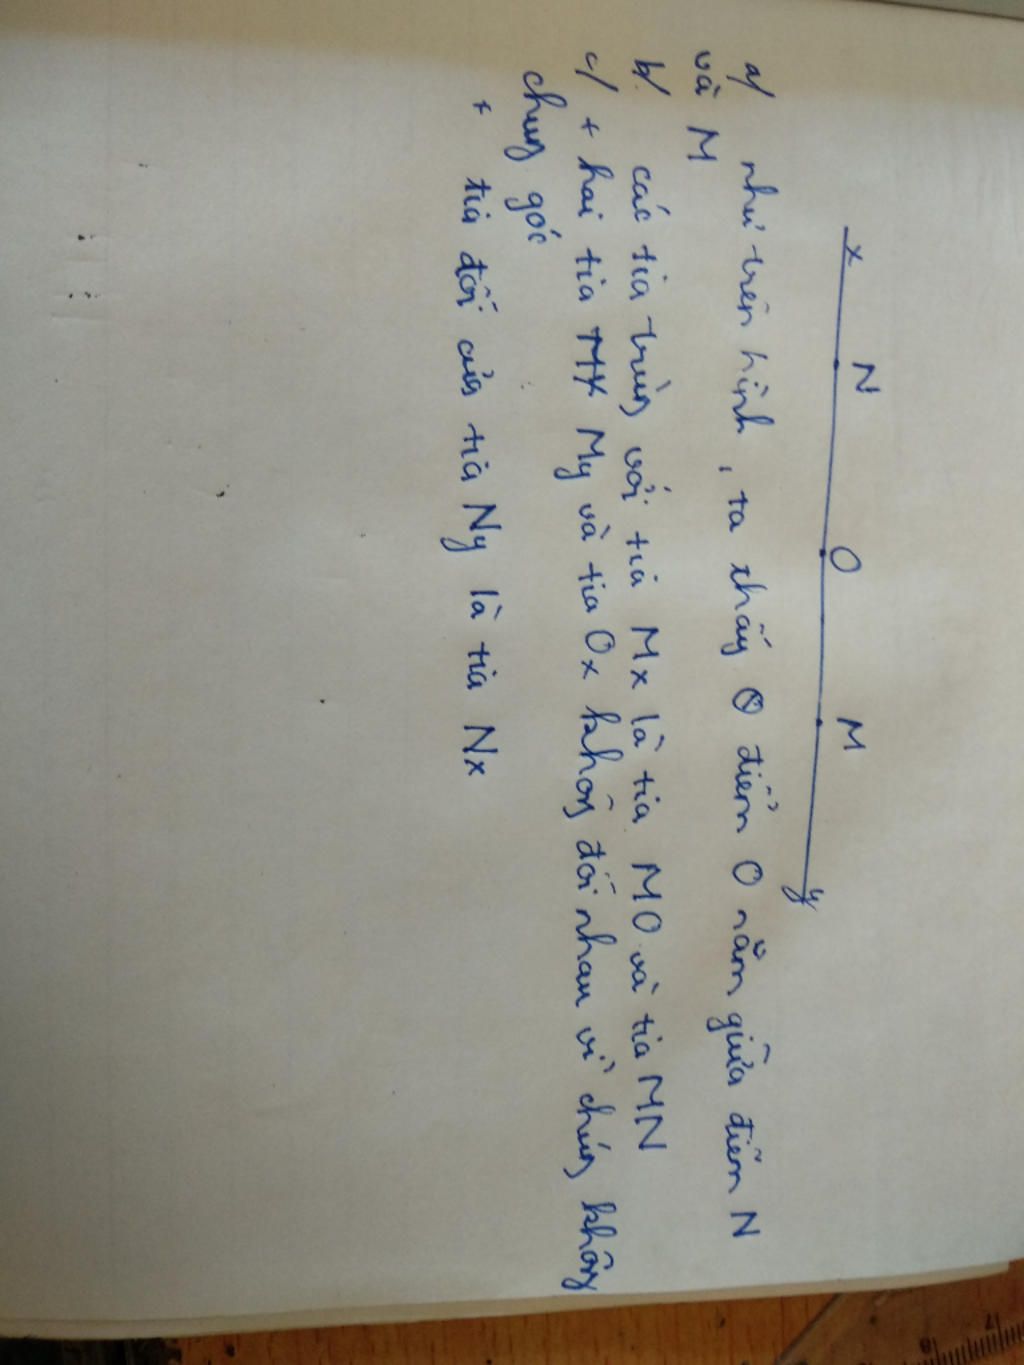 x N O M y
a/ như trên hình, ta thấy điểm O nằm giữa điểm N
và M
b/ các tia trùng với tia Mx là tia MO và tia MN
c/ + hai tia My và tia Ox không đối nhau vì chúng không
chung gốc
+ tia đối của tia Ny là tia Nx
17
18